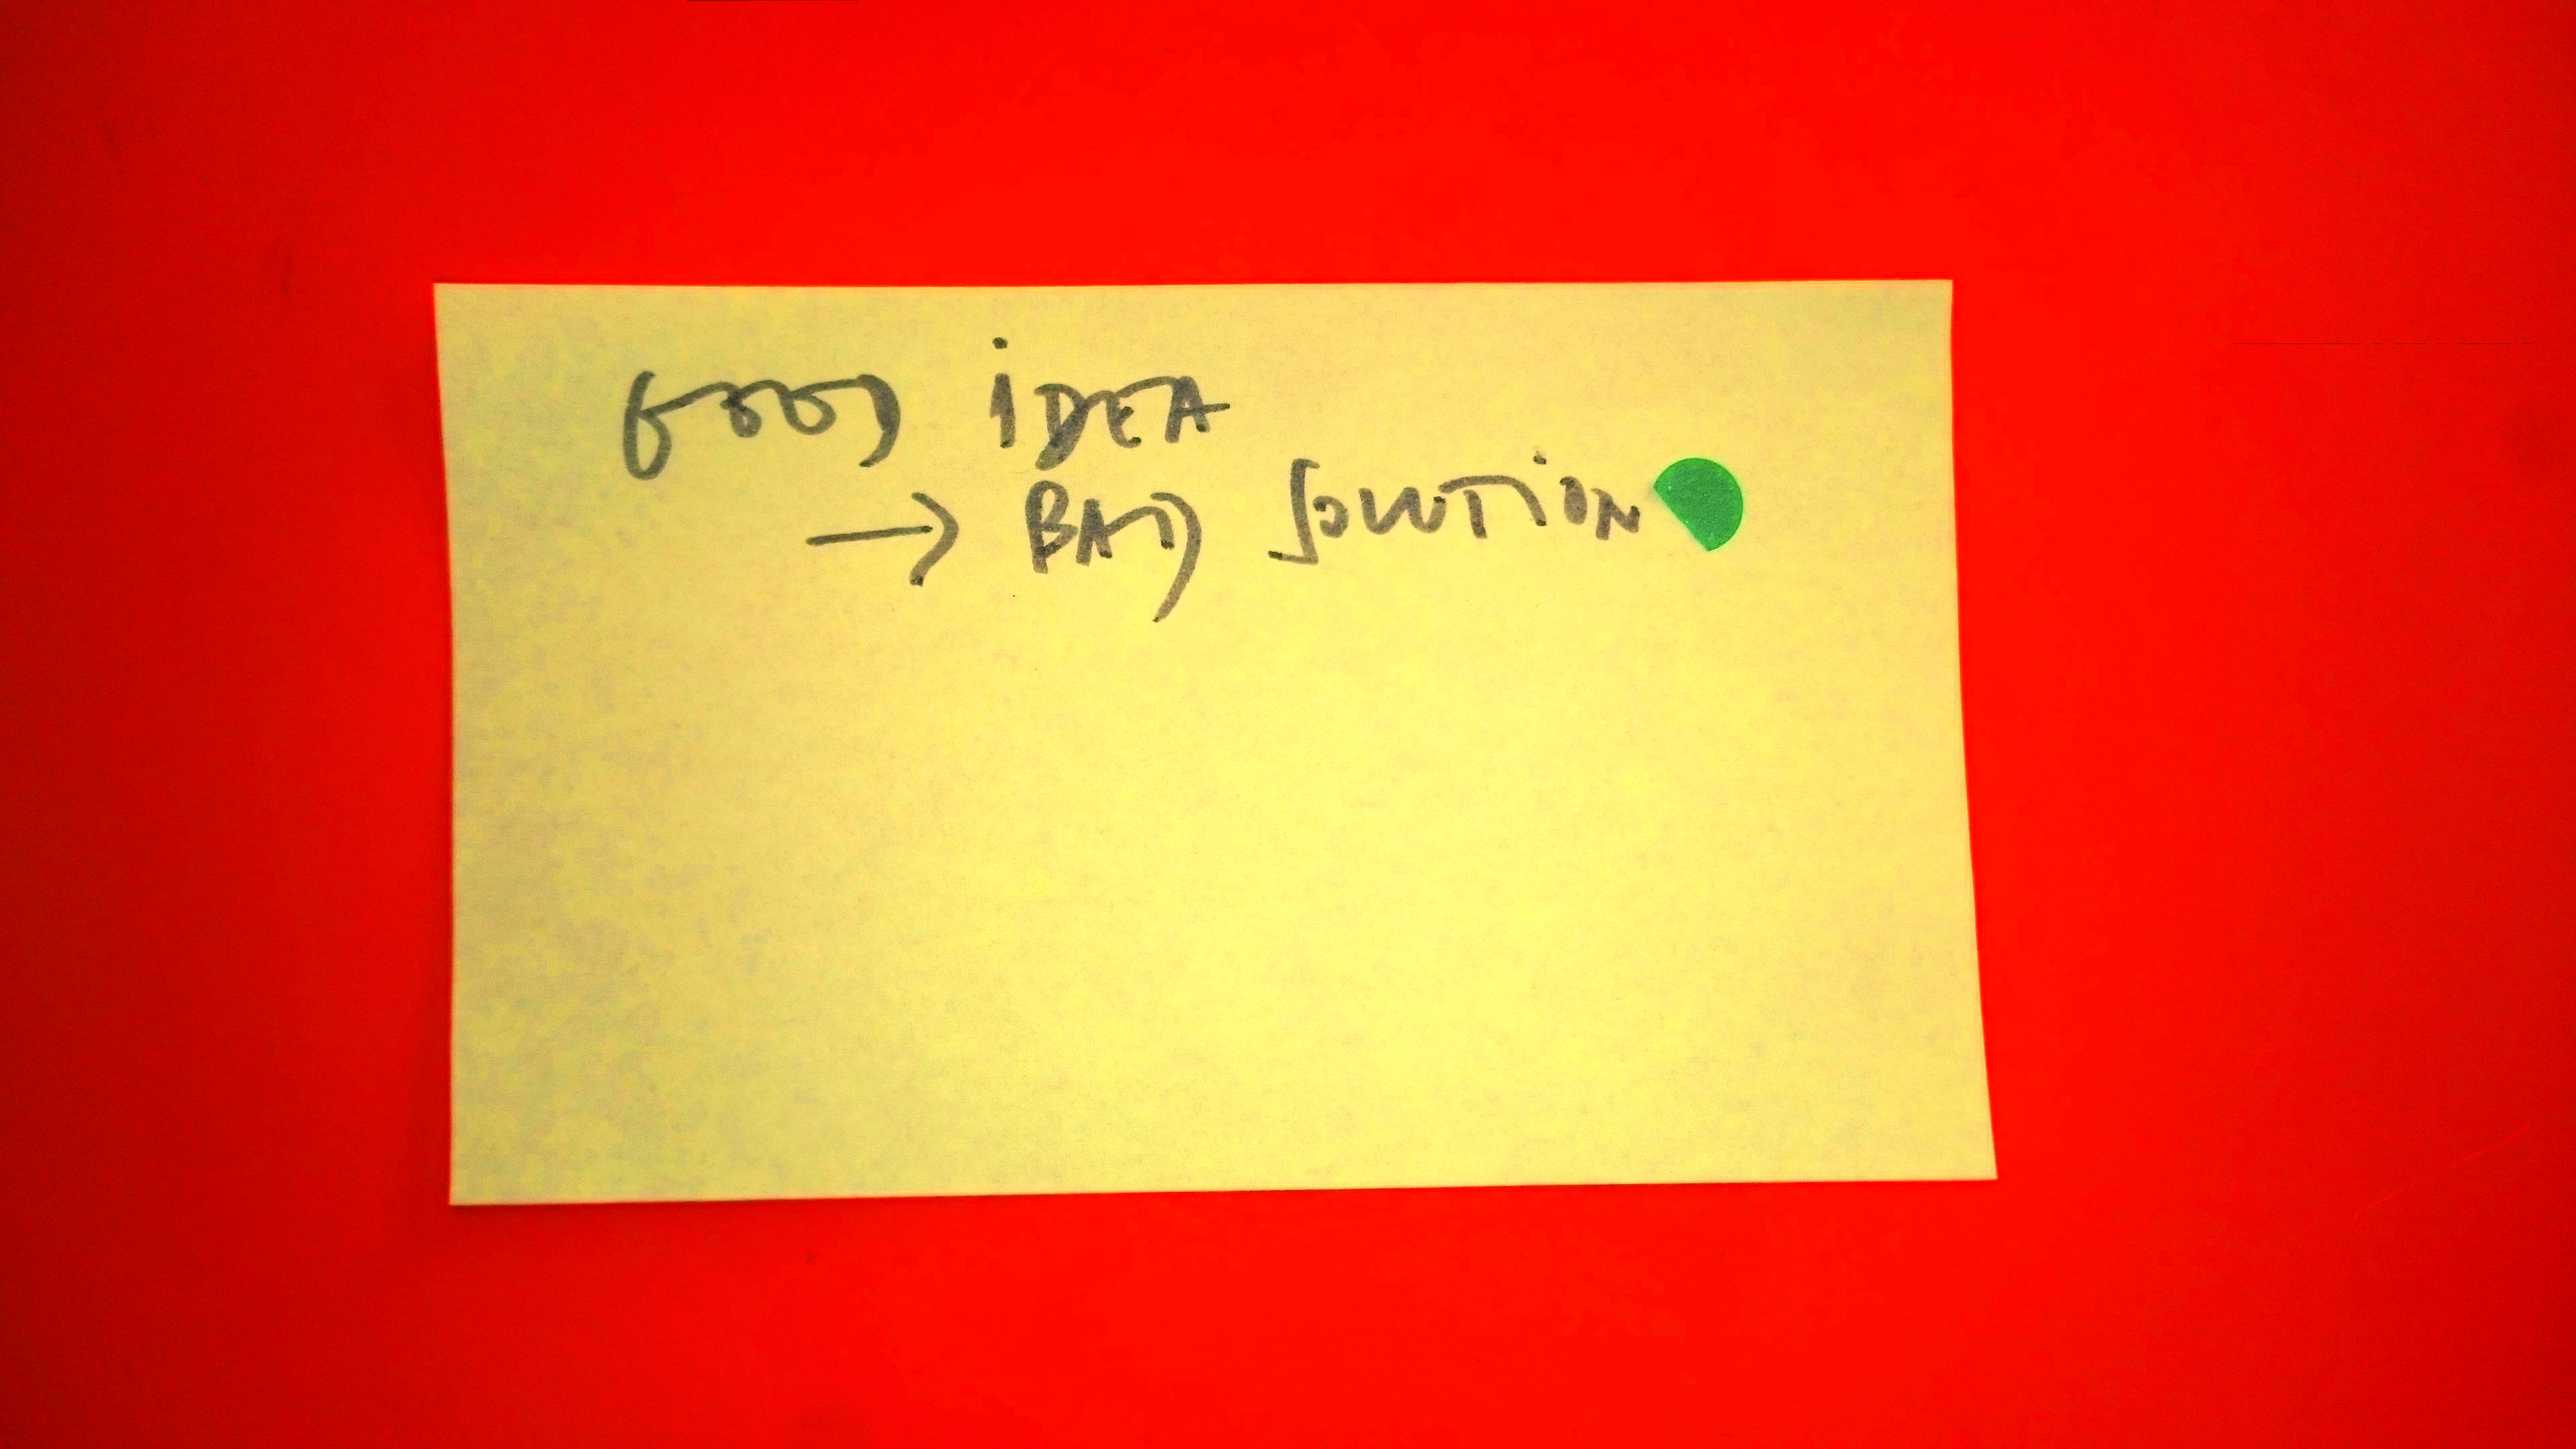 GOOD iDEA
→ BAD SOLUTiON